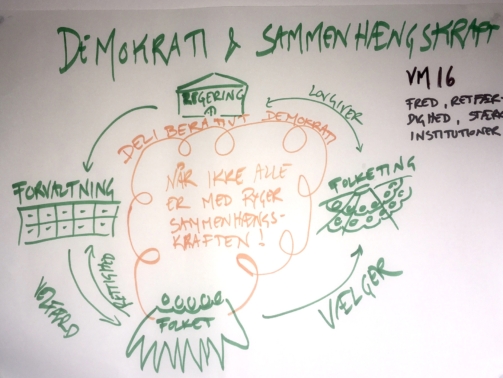 DEMOKRATI & SAMMENHÆNGSKRAFT
VM 16
FRED, RETFÆR-
DIGHED, STÆRKE
INSTITUTIONER
REGERING
LOVGIVER
DELIBERATIVT DEMOKRATI
FORVALTNING
FOLKETING
NÅR IKKE ALLE
ER MED RYGER
SAMMENHÆNGS-
KRAFTEN!
VELFÆRD
RETTIGHED
FOLKET
VÆLGER